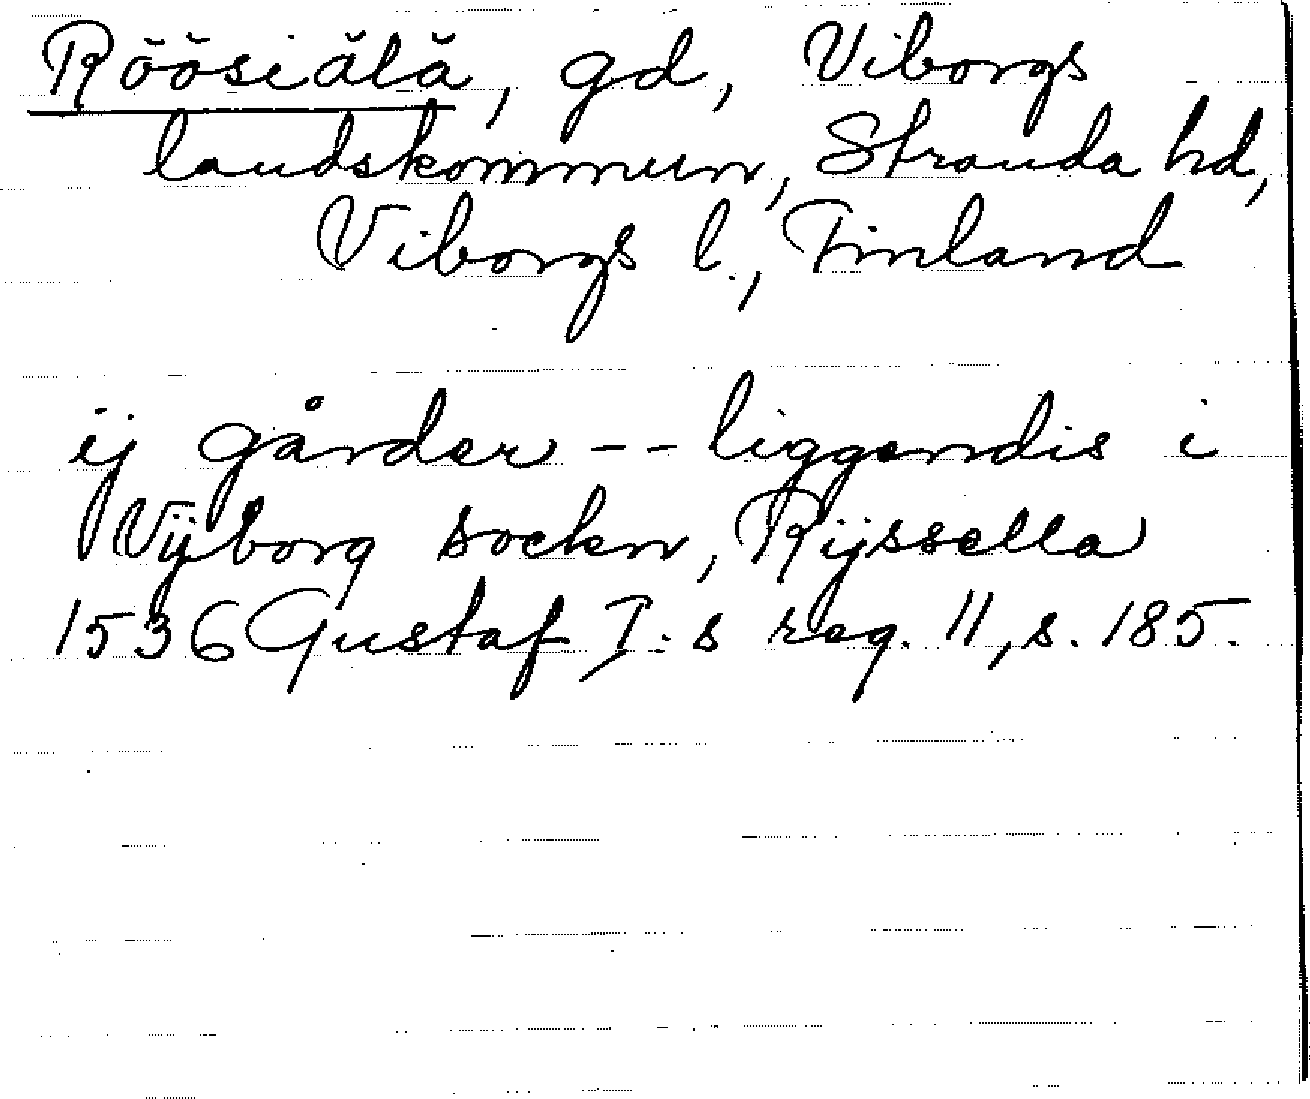 Röösiälä, gd, Viborgs
landskommun, Stranda hd,
Viborgs l., Finland
ij gårder -- liggendis i
Vijborg sockn, Rijssella
1536 Gustaf I:s reg. 11, s. 185.